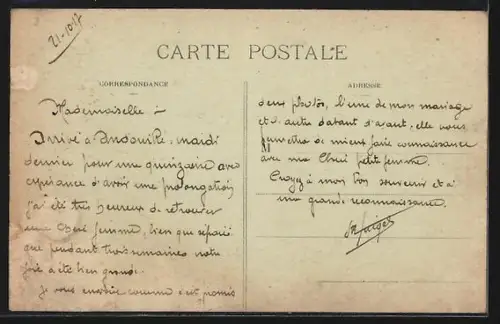 21-10-17
CARTE POSTALE
CORRESPONDANCE
ADRESSE
Mademoiselle :-
Arrivé à mardi
dernier pour une quinzaine avec
espérance d'avoir une prolongation
j'ai été très heureux de retrouver
chère femme, bien que séparés
que pendant trois semaines notre
joie a été bien grande.
Je vous envoie comme c'est promis
deux photos, l'une de mon mariage
et l'autre datant d'avant; elle vous
permettra de mieux faire connaissance
avec ma chère petite femme.
Croyez à mon bon souvenir et à
ma grande reconnaissance.